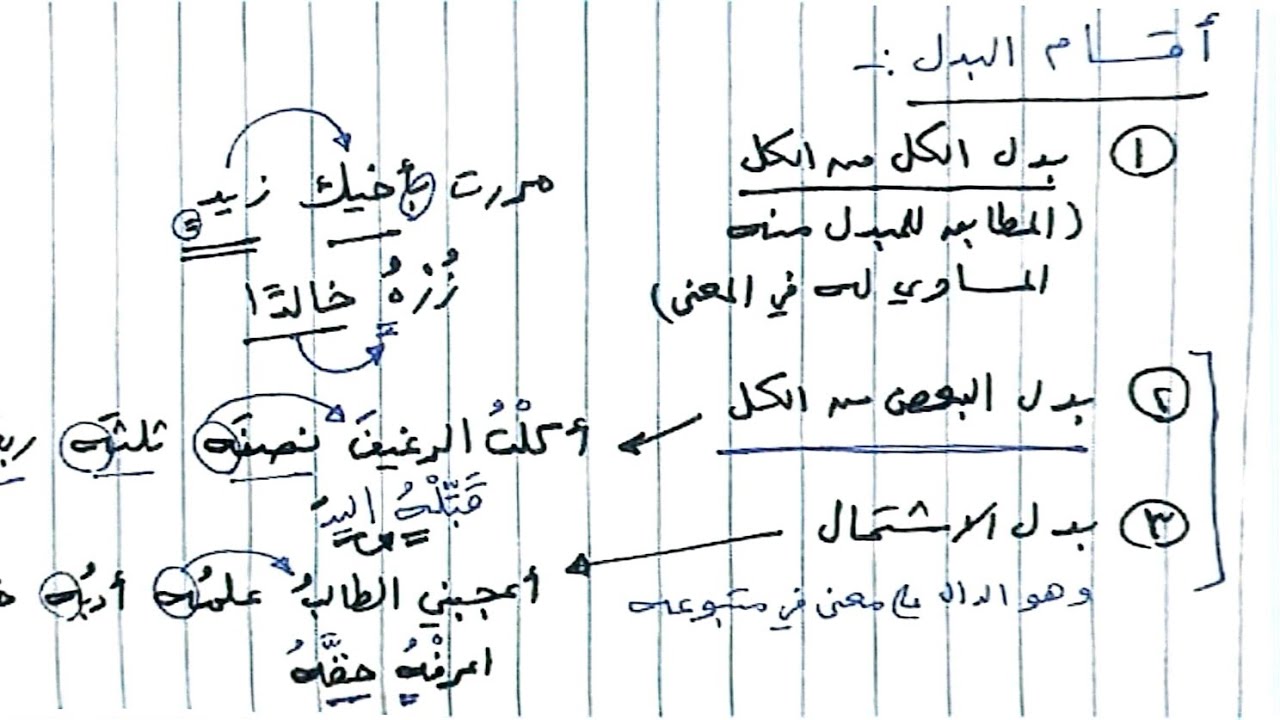 أقسام البدل :-
١ بدل الكل من الكل
(المطابق للمبدل منه
المساوي له في المعنى)
مررت بأخيك زيدٍ
زُرْهُ خالدًا
٢ بدل البعض من الكل
أكلْتُ الرغيفَ نصفَه ثلثَه
قَبِّلْهُ اليدَ
٣ بدل الاشتمال
وهو الدال على معنى في متبوعه
أعجبني الطالبُ علمُه أدبُه
اعرفْهُ حقَّهُ